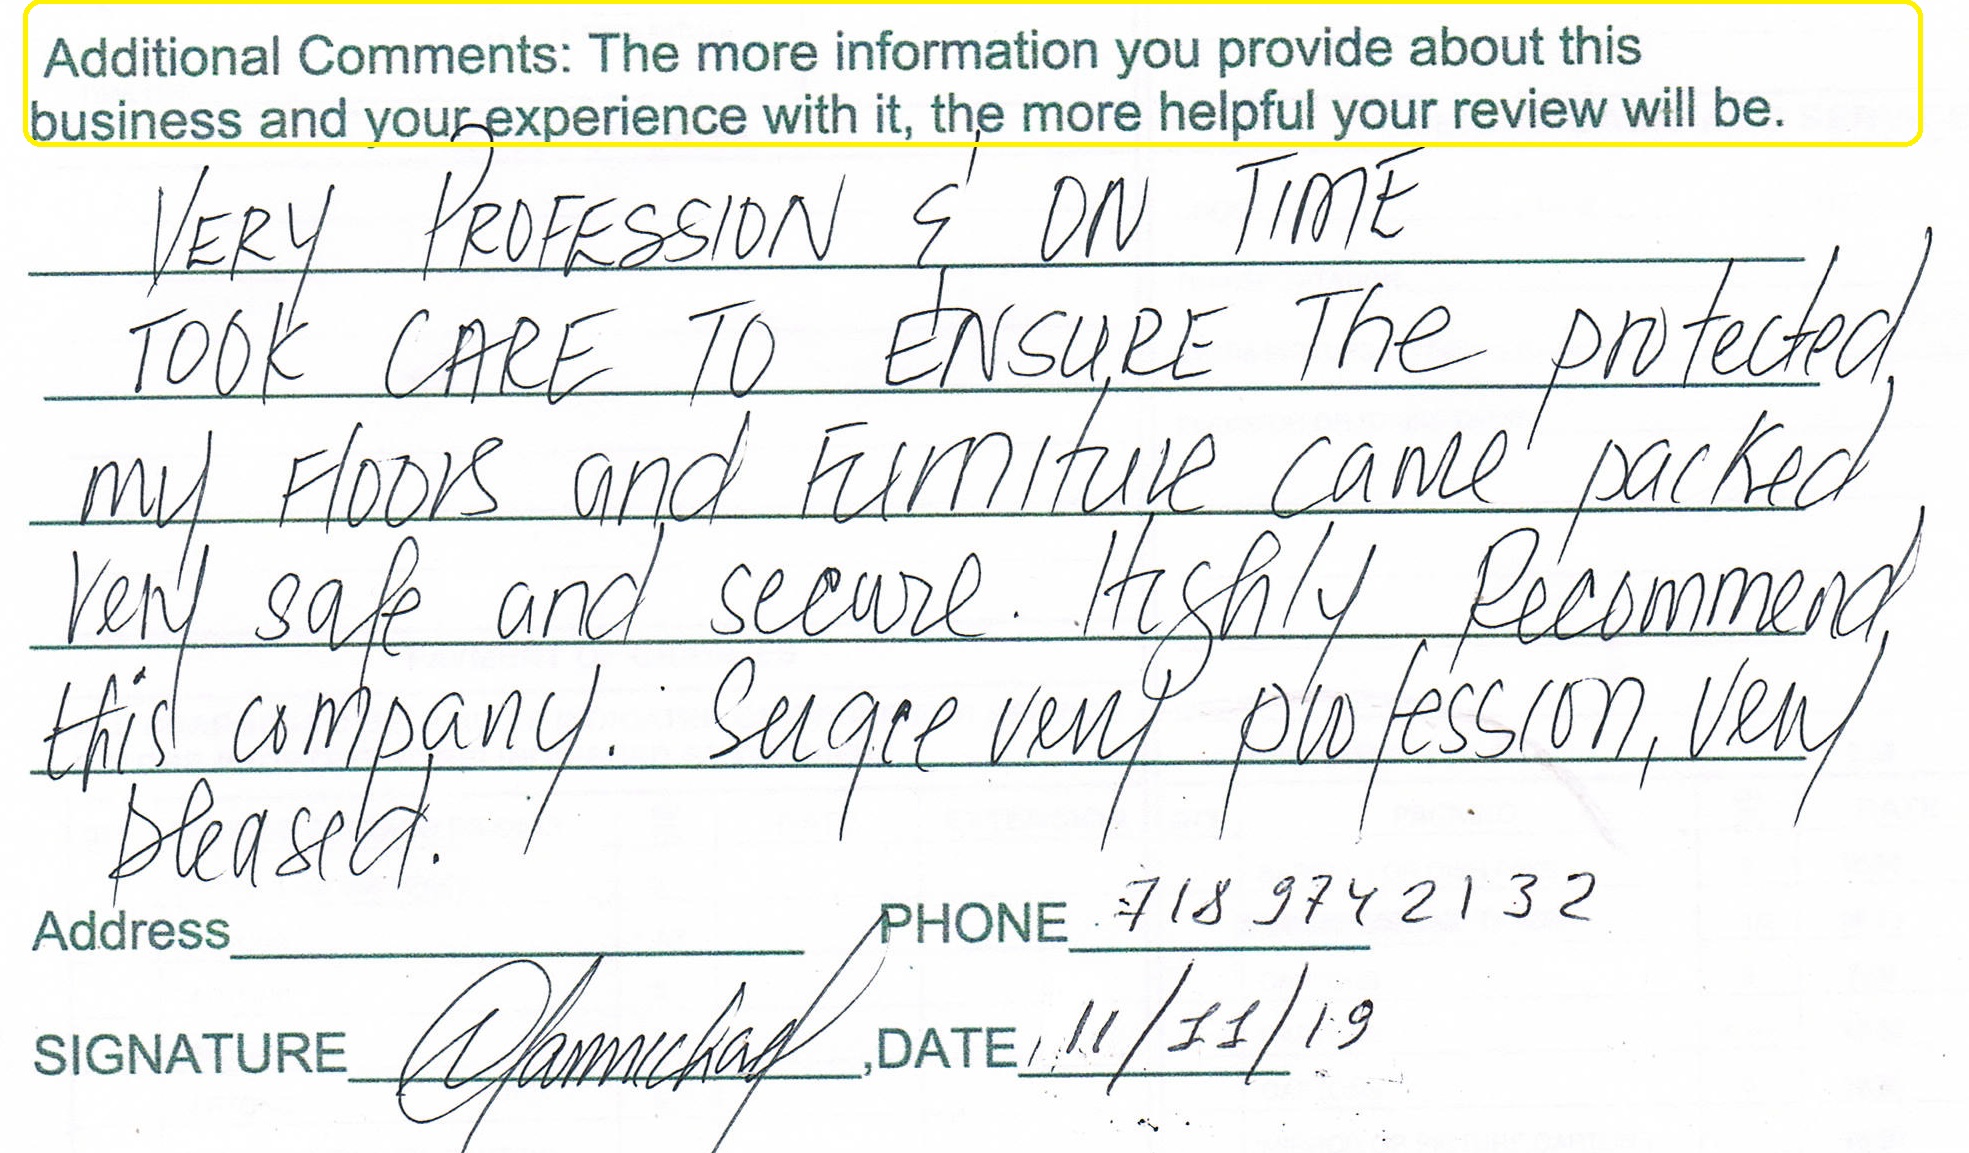 Additional Comments: The more information you provide about this
business and your experience with it, the more helpful your review will be.
VERY PROFESSION & ON TIME
TOOK CARE TO ENSURE The protected
my Floors and Furniture came packed
very safe and secure. Highly Recommend
this company. Sergee very profession, very
pleased.
Address PHONE 718 974 2132
SIGNATURE ,DATE 11/11/19